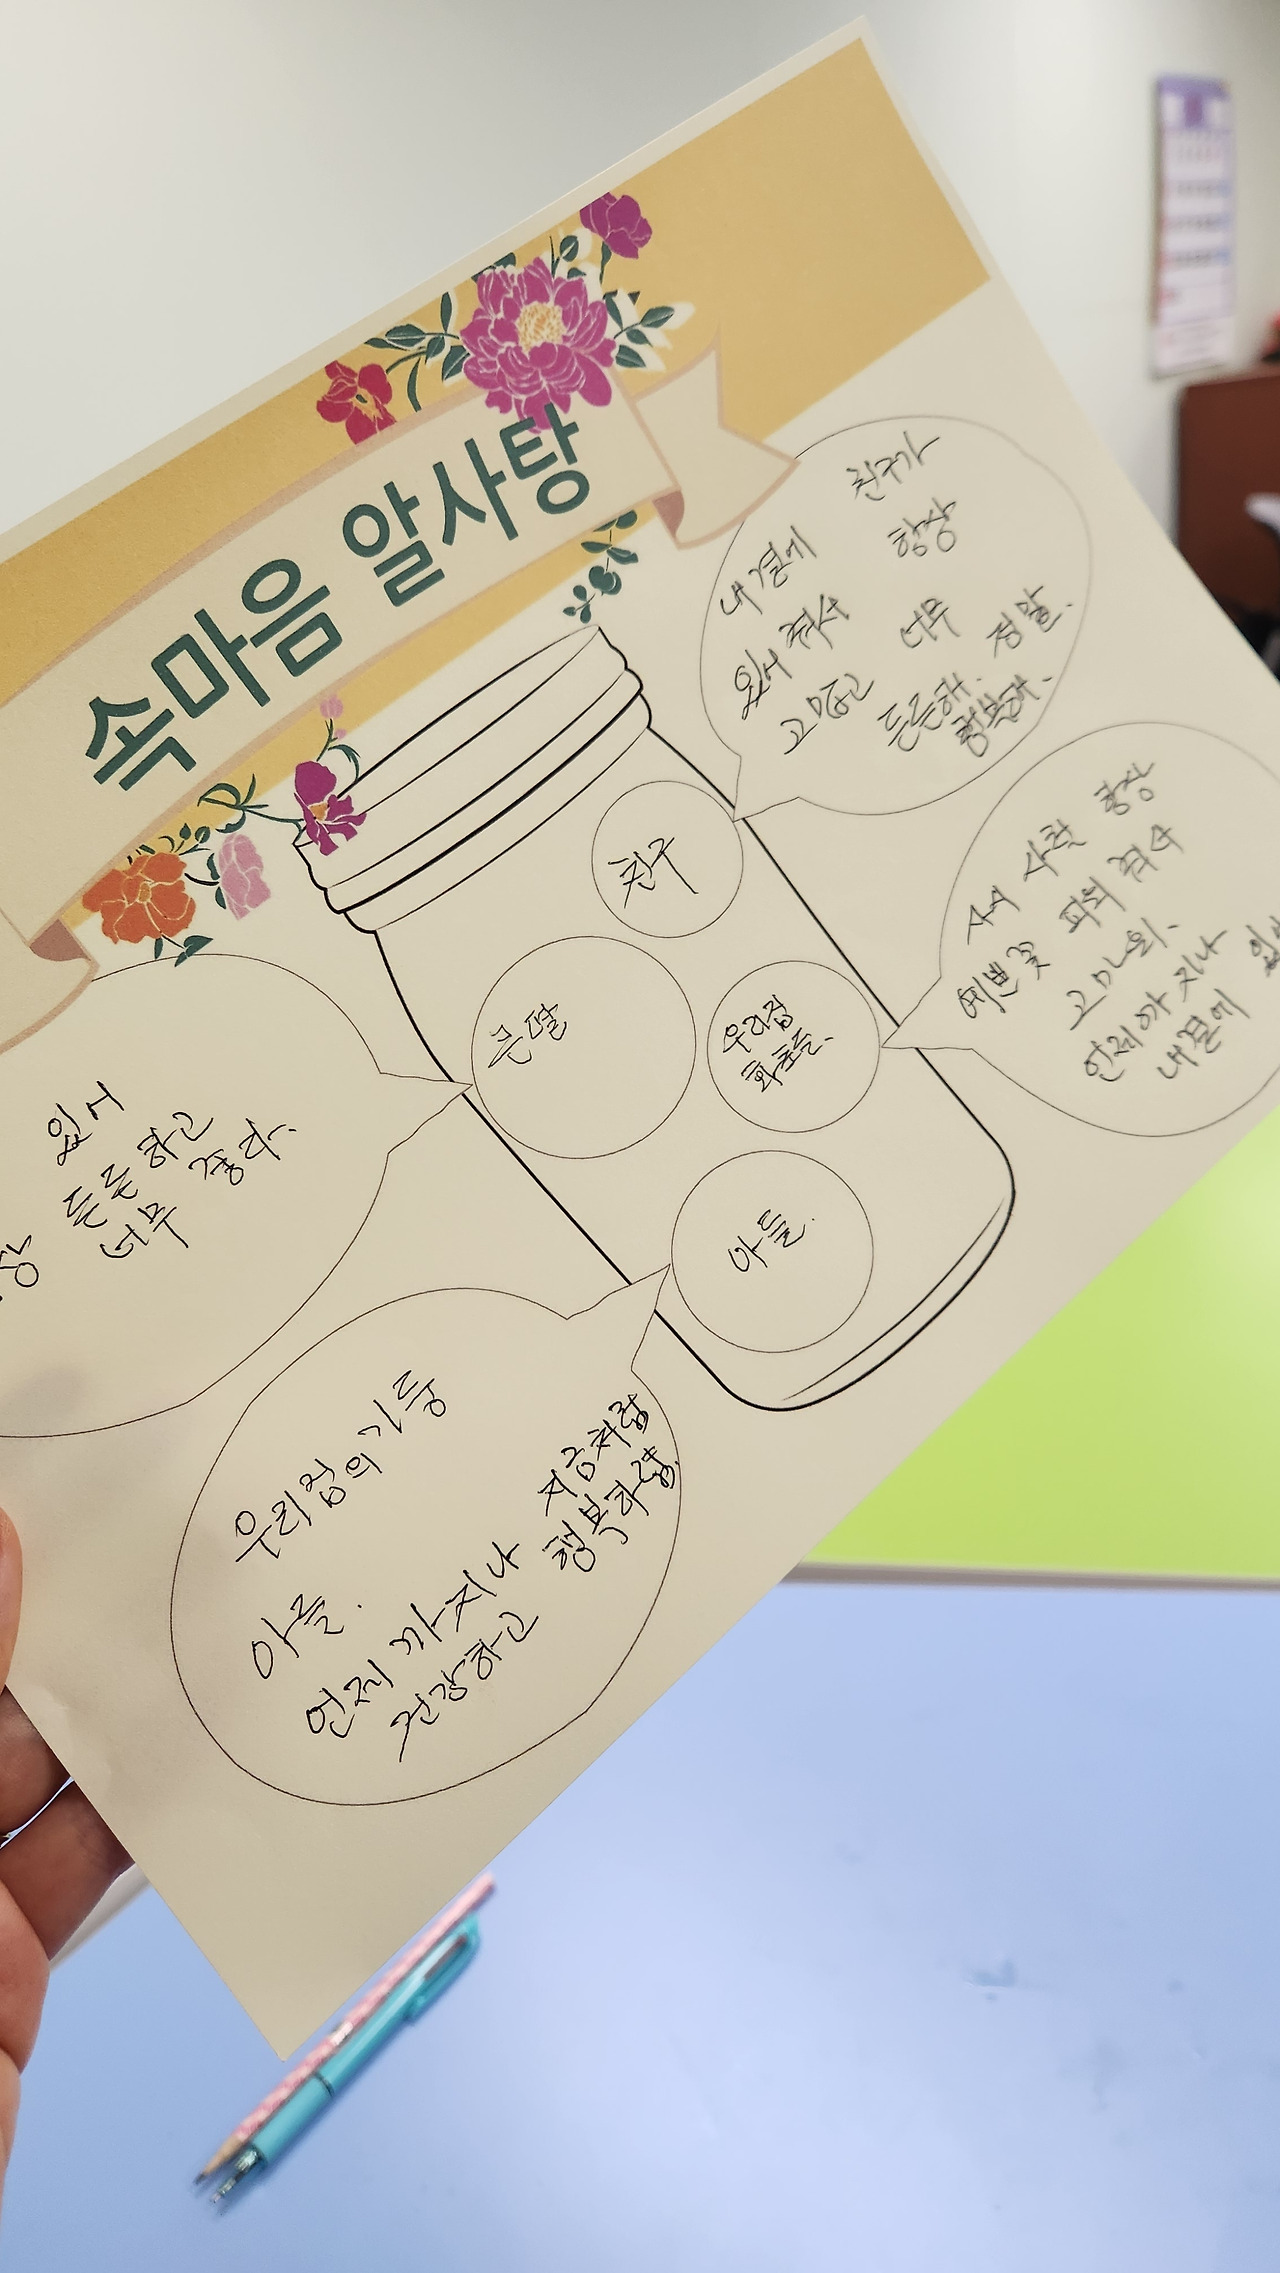 속마음 알사탕
친구가
내 곁에 항상
있어 줘서 너무 정말.
고맙고 든든해. 행복해.
친구
사시 사철 항상
예쁜 꽃 피워 줘서
고마워.
언제까지나
내곁에
큰딸
우리집
화초들.
있어
든든하고
너무 좋다.
아들.
우리집의 기둥
아들.
언제 까지나 지금처럼
건강하고 행복하렴.